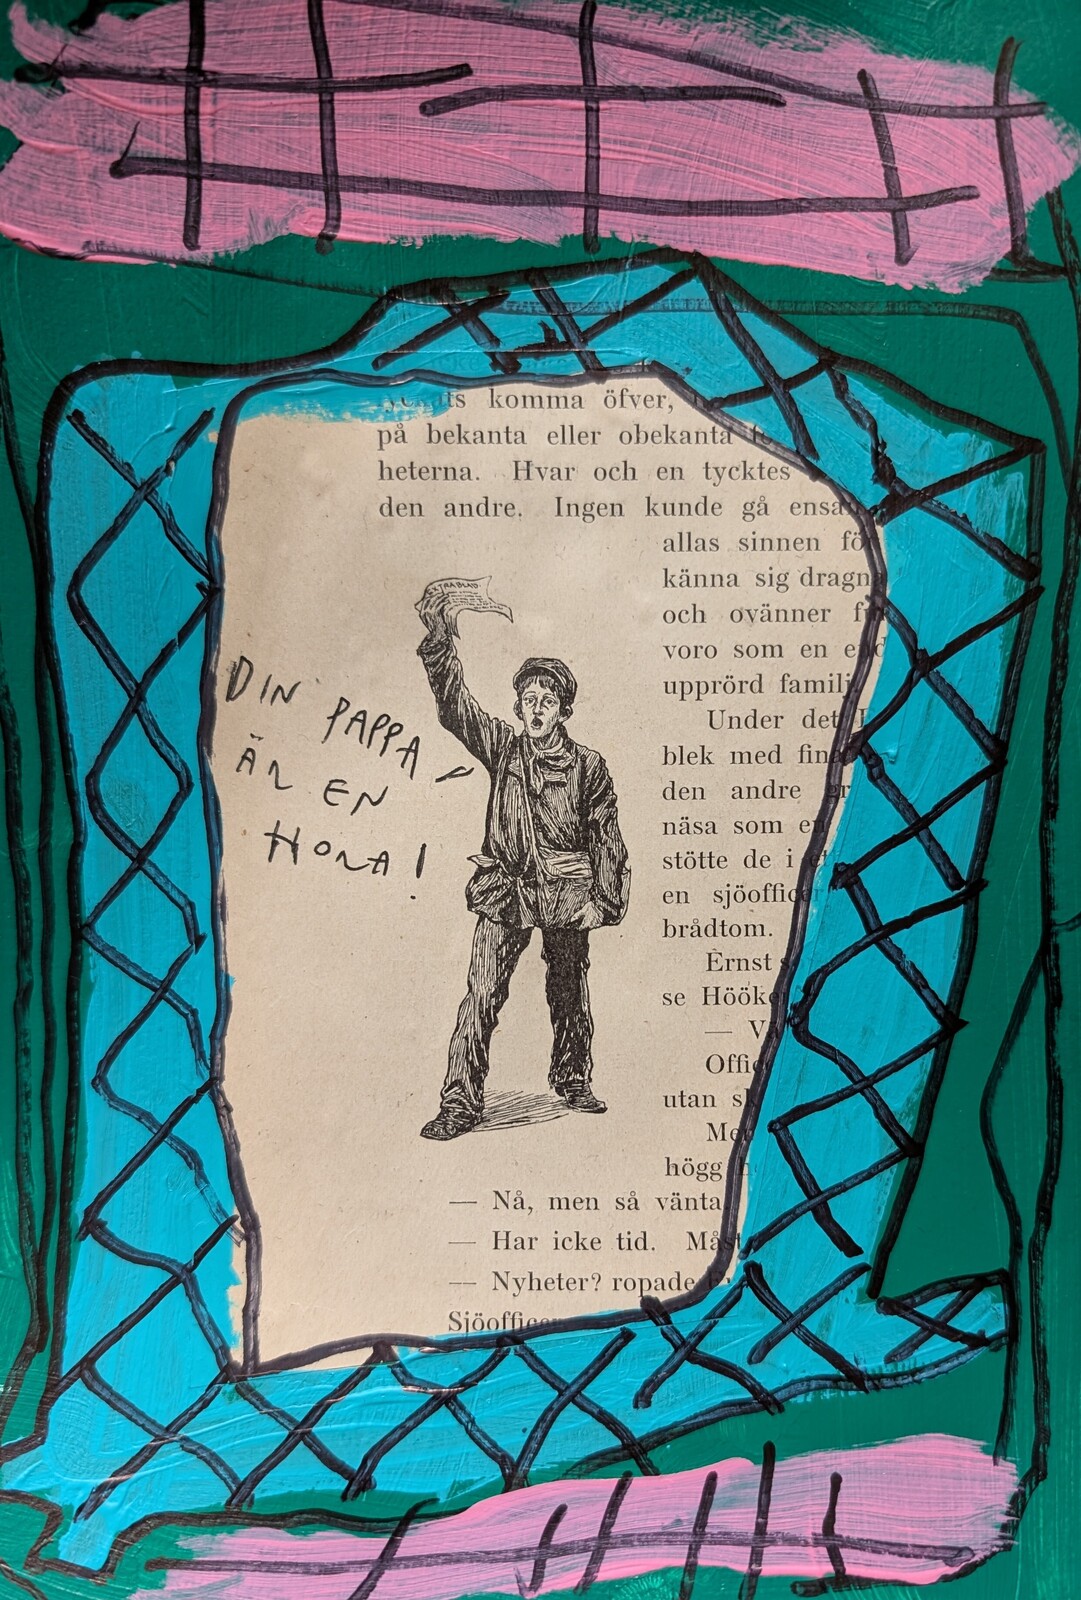 komma öfver,
på bekanta eller obekanta
heterna. Hvar och en tycktes
den andre. Ingen kunde gå ensa
allas sinnen fö
känna sig dragn
och ovänner f
voro som en e
upprörd familj
Under det
blek med fin
den andre gr
näsa som en
stötte de i
en sjöoffic
brådtom.
Ernst
se Höök
— V
Offic
utan s
Me
högg
— Nå, men så vänta
— Har icke tid. Måst
— Nyheter? ropade
Sjöofficer
EXTRABLAD.
DIN PAPPA
ÄR EN
HORA!